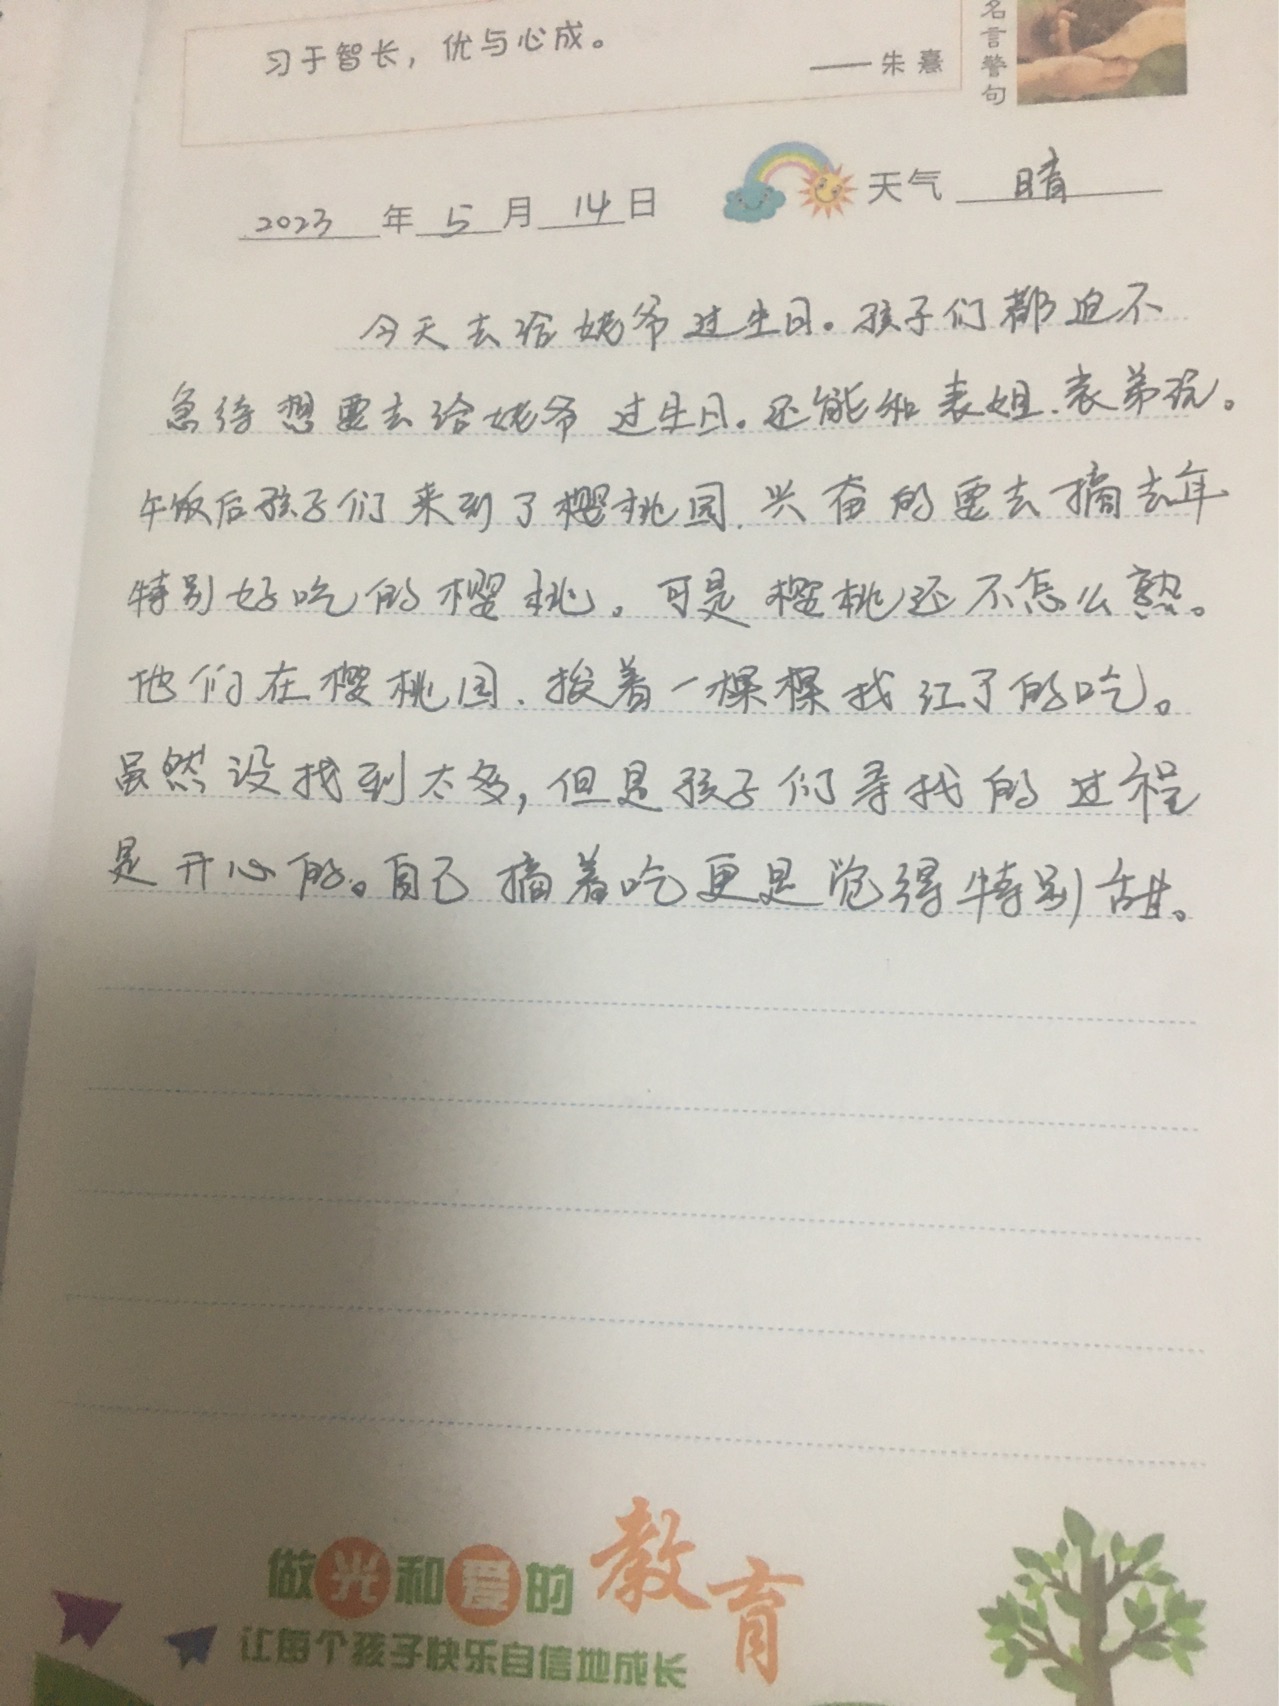 习于智长，优与心成。
——朱熹
名言警句
2023年5月14日 天气 晴
今天去给姥爷过生日。孩子们都迫不
急待想要去给姥爷过生日。还能和表姐、表弟玩。
午饭后孩子们来到了樱桃园、兴奋的要去摘去年
特别好吃的樱桃。可是樱桃还不怎么熟。
他们在樱桃园、挨着一棵棵找红了的吃。
虽然没找到太多，但是孩子们寻找的过程
是开心的。自己摘着吃更是觉得特别甜。
做光和爱的教育
让每个孩子快乐自信地成长